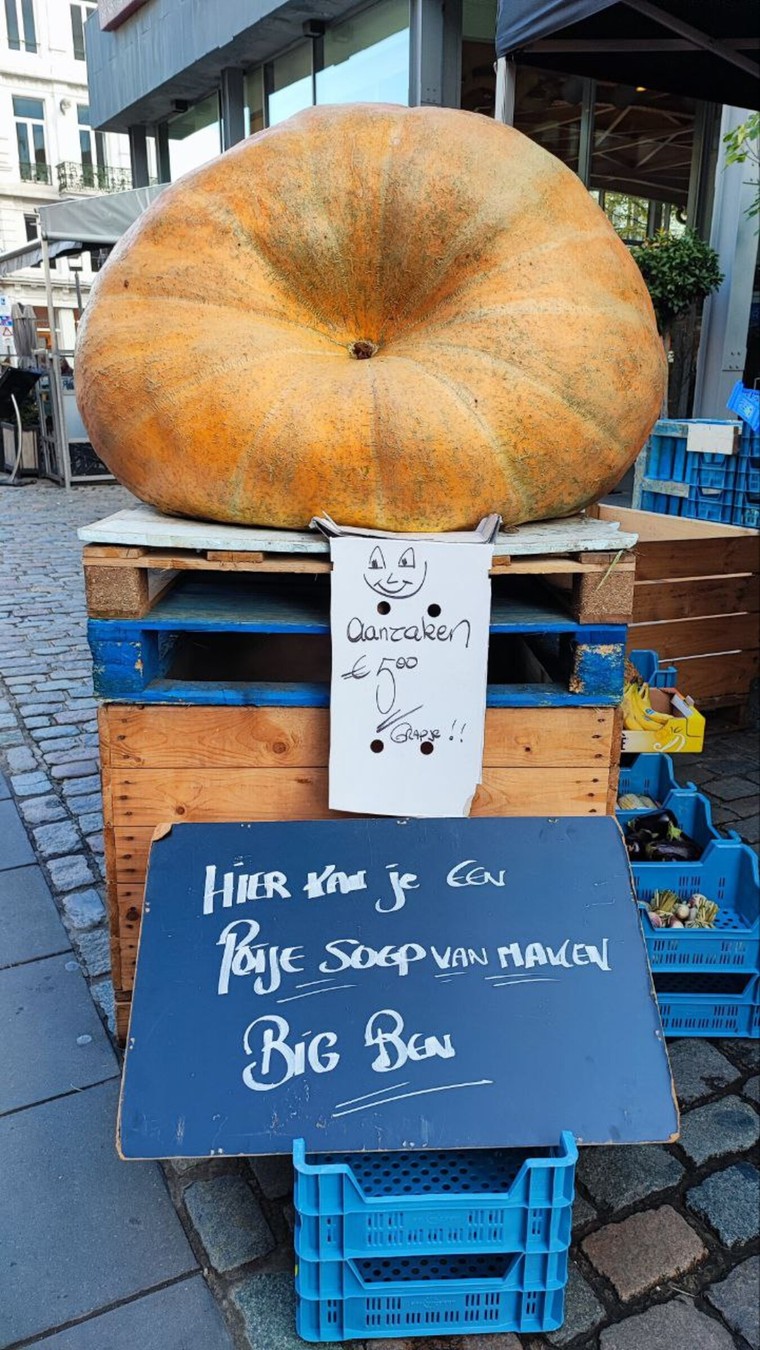 Aanraken
€ 5,00
Grapje !!
Hier kan je een
Potje soep van maken
Big Ben